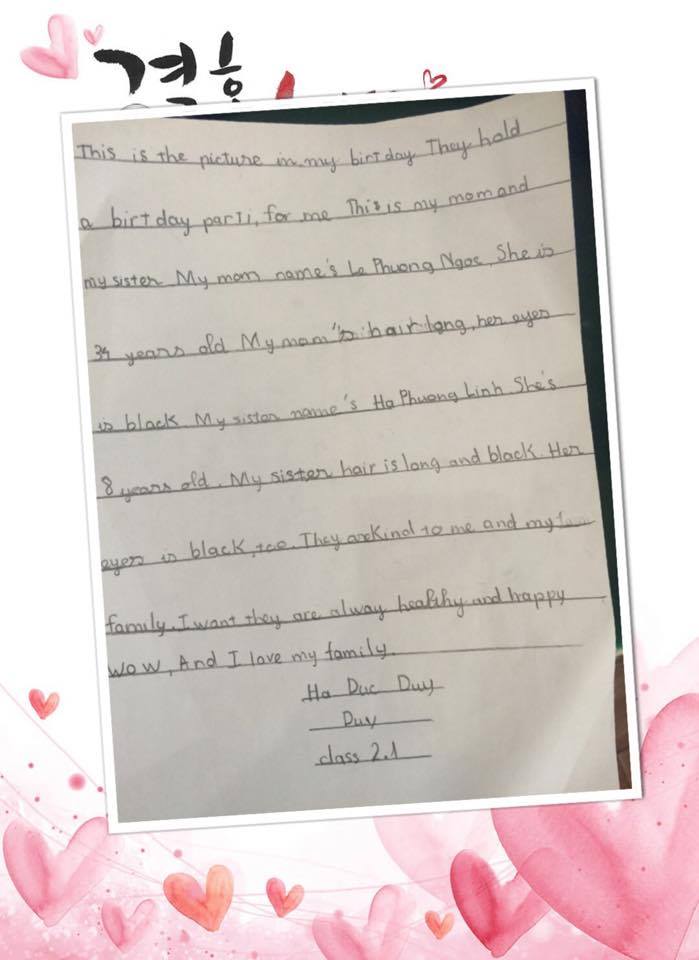 This is the picture in my birtday They hold
a birtday parti, for me This is my mom and
my sister My mom name's Le Phuong Ngoc. She is
34 years old My mom's hair long, her eyes
is black My sister name's Ha Phuong Linh She's
8 years old. My sister hair is long and black Her
eyes is black, too. They are kind to me and my
family. I want they are alway healthy and happy
wow, And I love my family.
Ha Duc Duy
Duy
class 2.1